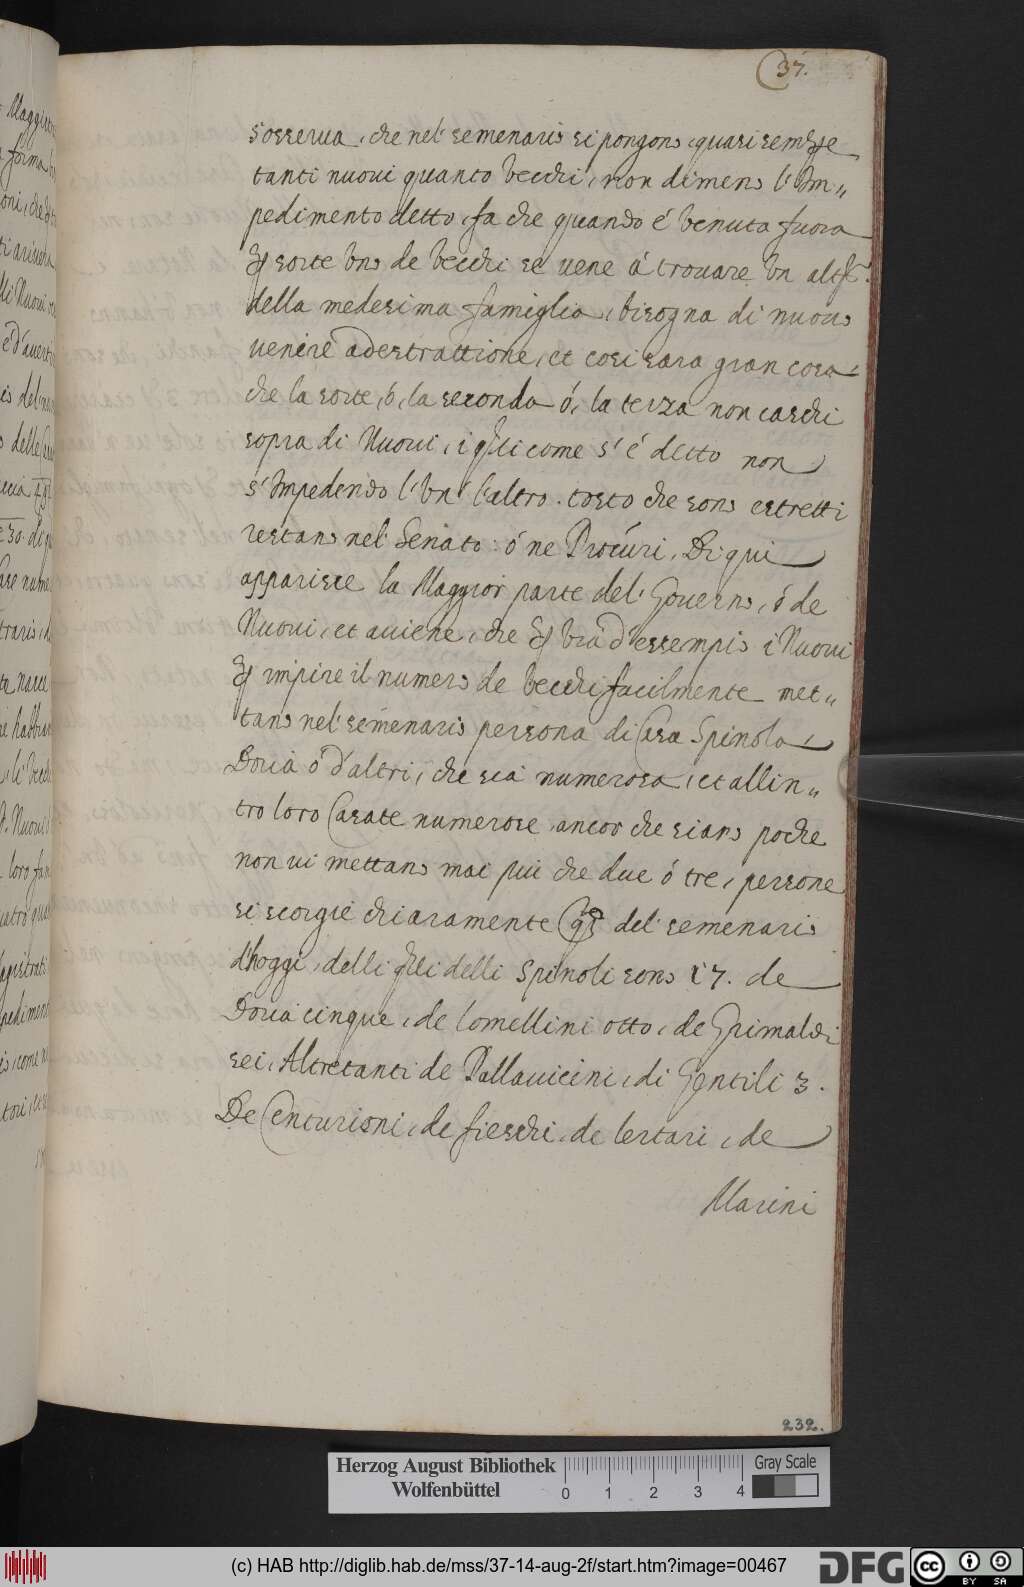 37.
s'osserva, che nel' semenario si pongono, quasi sempre
tanti nuovi quanto vecchi, non dimeno l'Im„
pedimento detto, fa che quando é venuta fuora
p sorte vno de vecchi se uene á trouare vn alt.º
della medesima famiglia, bisogna di nuouo
uenire ad estrattione, et cosi sara gran cosa
che la sorte, ó, la seconda ó, la terza non caschi
sopra di Nuoui, i qli come s' é detto non
s'Impedendo l'vn l'altro. tosto che sono estretti
restano nel' Senato ó ne Procúri, Di qui
apparisce la Maggior parte del' Gouerno, ó de
Nuoui, et auiene, che p via d'essempio i Nuoui
p impire il numero de vecchi facilmente met„
tano nel' semenario persona di Casa Spinola
Doria ó d'altri, che sia numerosa, et allin„
tro loro Casate numerose ancor che siano poche
non ui mettano mai piú che due ó tre, persone
si scorgie chiaramente del' semenario
d'hoggi, delli qli delli Spinoli sono 17. de
Doria cinque, de lomellini otto, de Grimaldi
sei, Altretanti de Pallauicini, di Gentili 3.
De Centurioni, de fieschi, de lertari, de
Marini
232.
Herzog August Bibliothek
Wolfenbüttel
0 1 2 3 4
Gray Scale
(c) HAB http://diglib.hab.de/mss/37-14-aug-2f/start.htm?image=00467
DFG
cc BY SA